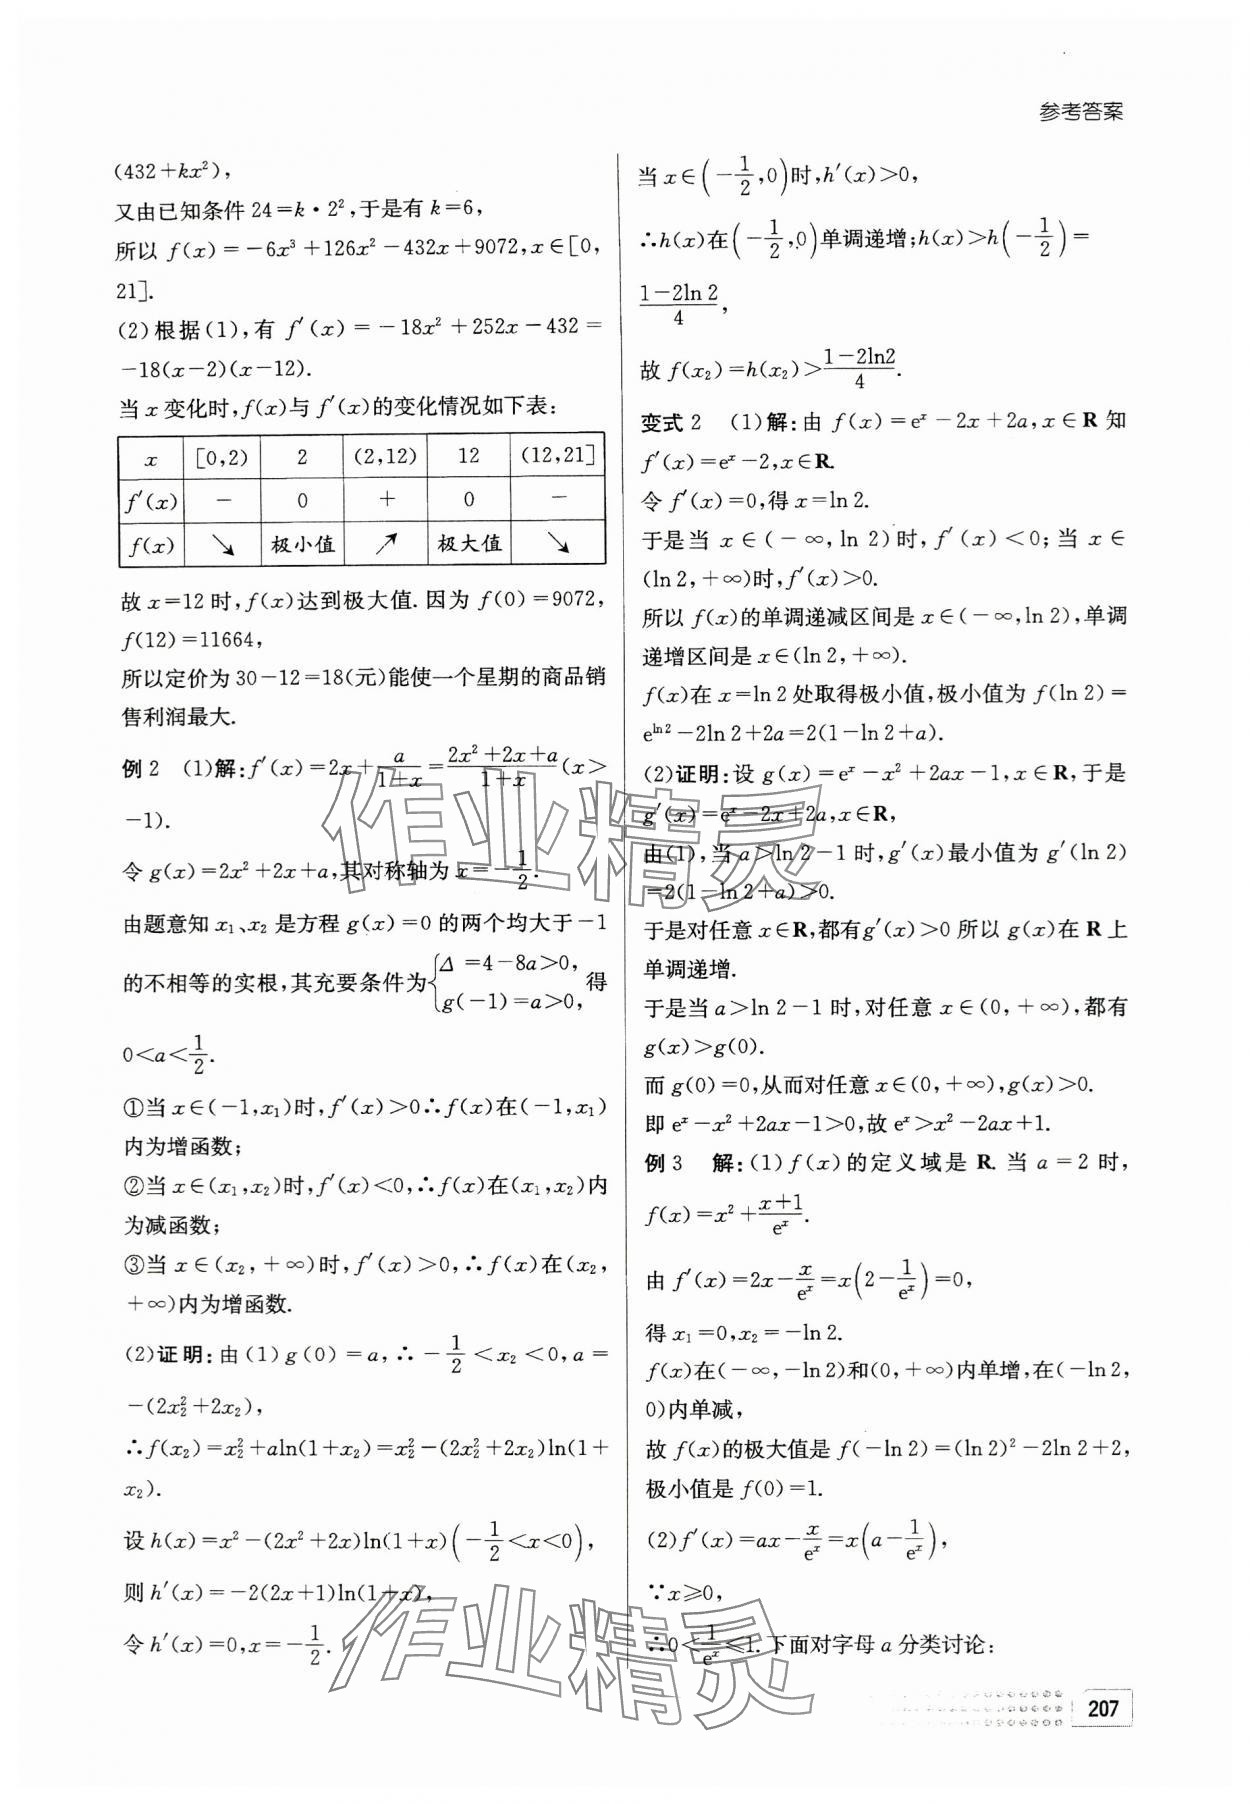 参考答案
(432+kx²),
又由已知条件 24=k·2²,于是有 k=6,
所以 f(x)=-6x³+126x²-432x+9072,x∈[0,
21].
(2)根据(1),有 f′(x)=-18x²+252x-432=
-18(x-2)(x-12).
当 x 变化时,f(x)与 f′(x)的变化情况如下表:
x [0,2) 2 (2,12) 12 (12,21]
f′(x) - 0 + 0 -
f(x) ↘ 极小值 ↗ 极大值 ↘
故 x=12 时,f(x)达到极大值. 因为 f(0)=9072,
f(12)=11664,
所以定价为 30-12=18(元)能使一个星期的商品销
售利润最大.
例 2 (1)解:f′(x)=2x+a/(1+x)=(2x²+2x+a)/(1+x)(x>
-1).
令 g(x)=2x²+2x+a,其对称轴为 x=-1/2.
由题意知 x₁、x₂ 是方程 g(x)=0 的两个均大于-1
的不相等的实根,其充要条件为{Δ=4-8a>0, g(-1)=a>0, 得
0<a<1/2.
①当 x∈(-1,x₁)时,f′(x)>0∴f(x)在(-1,x₁)
内为增函数;
②当 x∈(x₁,x₂)时,f′(x)<0,∴f(x)在(x₁,x₂)内
为减函数;
③当 x∈(x₂,+∞)时,f′(x)>0,∴f(x)在(x₂,
+∞)内为增函数.
(2)证明:由(1)g(0)=a,∴-1/2<x₂<0,a=
-(2x₂²+2x₂),
∴f(x₂)=x₂²+aln(1+x₂)=x₂²-(2x₂²+2x₂)ln(1+
x₂).
设 h(x)=x²-(2x²+2x)ln(1+x)(-1/2<x<0),
则 h′(x)=-2(2x+1)ln(1+x),
令 h′(x)=0,x=-1/2.
当 x∈(-1/2,0)时,h′(x)>0,
∴h(x)在(-1/2,0)单调递增;h(x)>h(-1/2)=
(1-2ln 2)/4,
故 f(x₂)=h(x₂)>(1-2ln2)/4.
变式 2 (1)解:由 f(x)=eˣ-2x+2a,x∈R 知
f′(x)=eˣ-2,x∈R.
令 f′(x)=0,得 x=ln 2.
于是当 x∈(-∞,ln 2)时,f′(x)<0;当 x∈
(ln 2,+∞)时,f′(x)>0.
所以 f(x)的单调递减区间是 x∈(-∞,ln 2),单调
递增区间是 x∈(ln 2,+∞).
f(x)在 x=ln 2 处取得极小值,极小值为 f(ln 2)=
e^(ln 2)-2ln 2+2a=2(1-ln 2+a).
(2)证明:设 g(x)=eˣ-x²+2ax-1,x∈R,于是
g′(x)=eˣ-2x+2a,x∈R,
由(1),当 a>ln 2-1 时,g′(x)最小值为 g′(ln 2)
=2(1-ln 2+a)>0.
于是对任意 x∈R,都有g′(x)>0 所以 g(x)在 R 上
单调递增.
于是当 a>ln 2-1 时,对任意 x∈(0,+∞),都有
g(x)>g(0).
而 g(0)=0,从而对任意 x∈(0,+∞),g(x)>0.
即 eˣ-x²+2ax-1>0,故 eˣ>x²-2ax+1.
例 3 解:(1)f(x)的定义域是 R. 当 a=2 时,
f(x)=x²+(x+1)/eˣ.
由 f′(x)=2x-x/eˣ=x(2-1/eˣ)=0,
得 x₁=0,x₂=-ln 2.
f(x)在(-∞,-ln 2)和(0,+∞)内单增,在(-ln 2,
0)内单减,
故 f(x)的极大值是 f(-ln 2)=(ln 2)²-2ln 2+2,
极小值是 f(0)=1.
(2)f′(x)=ax-x/eˣ=x(a-1/eˣ),
∵x⩾0,
∴0<1/eˣ⩽1. 下面对字母 a 分类讨论:
207
作业精灵
作业精灵